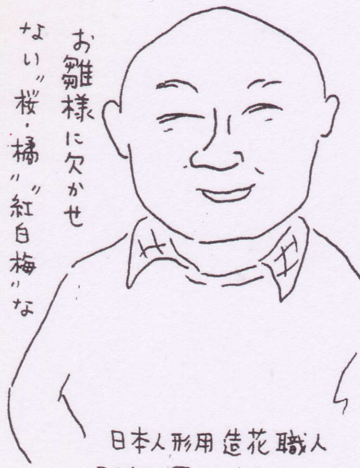 お雛様に欠かせ
ない〝桜・橘〟〝紅白梅〟な
日本人形用造花職人